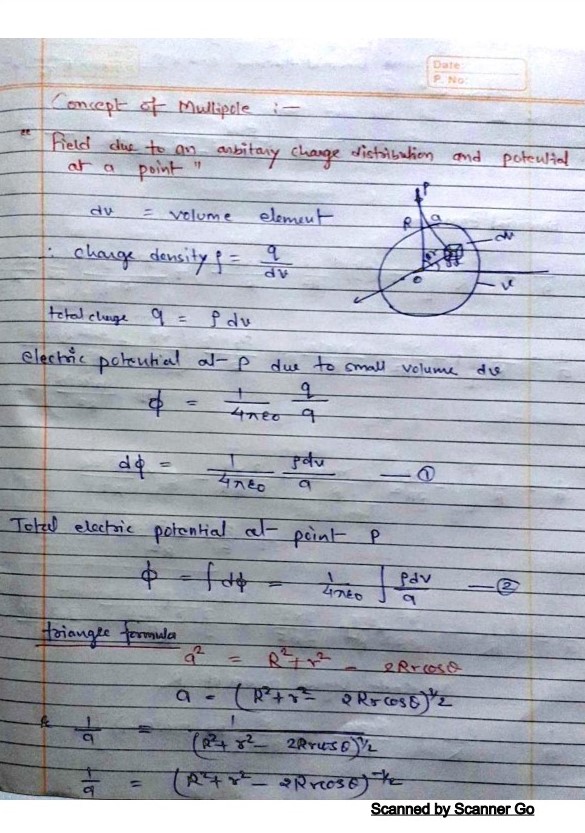 Date:
P. No:
Concept of Multipole :-
" Field due to an arbitary charge distribution and potential
at a point "
dv = volume element
∴ charge density ρ = q/dv
P
R
a
dv
r
θ
O
v
total charge q = ρ dv
electric potential at P due to small volume dv
ϕ = 1/4πε0 q/a
dϕ = 1/4πε0 ρdv/a — ①
Total electric potential at point P
ϕ = ∫dϕ = 1/4πε0 ∫ρdv/a — ②
triangle formula
a² = R² + r² - 2Rrcosθ
a = (R² + r² - 2Rrcosθ)^1/2
& 1/a = 1/(R² + r² - 2Rrcosθ)^1/2
1/a = (R² + r² - 2Rrcosθ)^-1/2
Scanned by Scanner Go